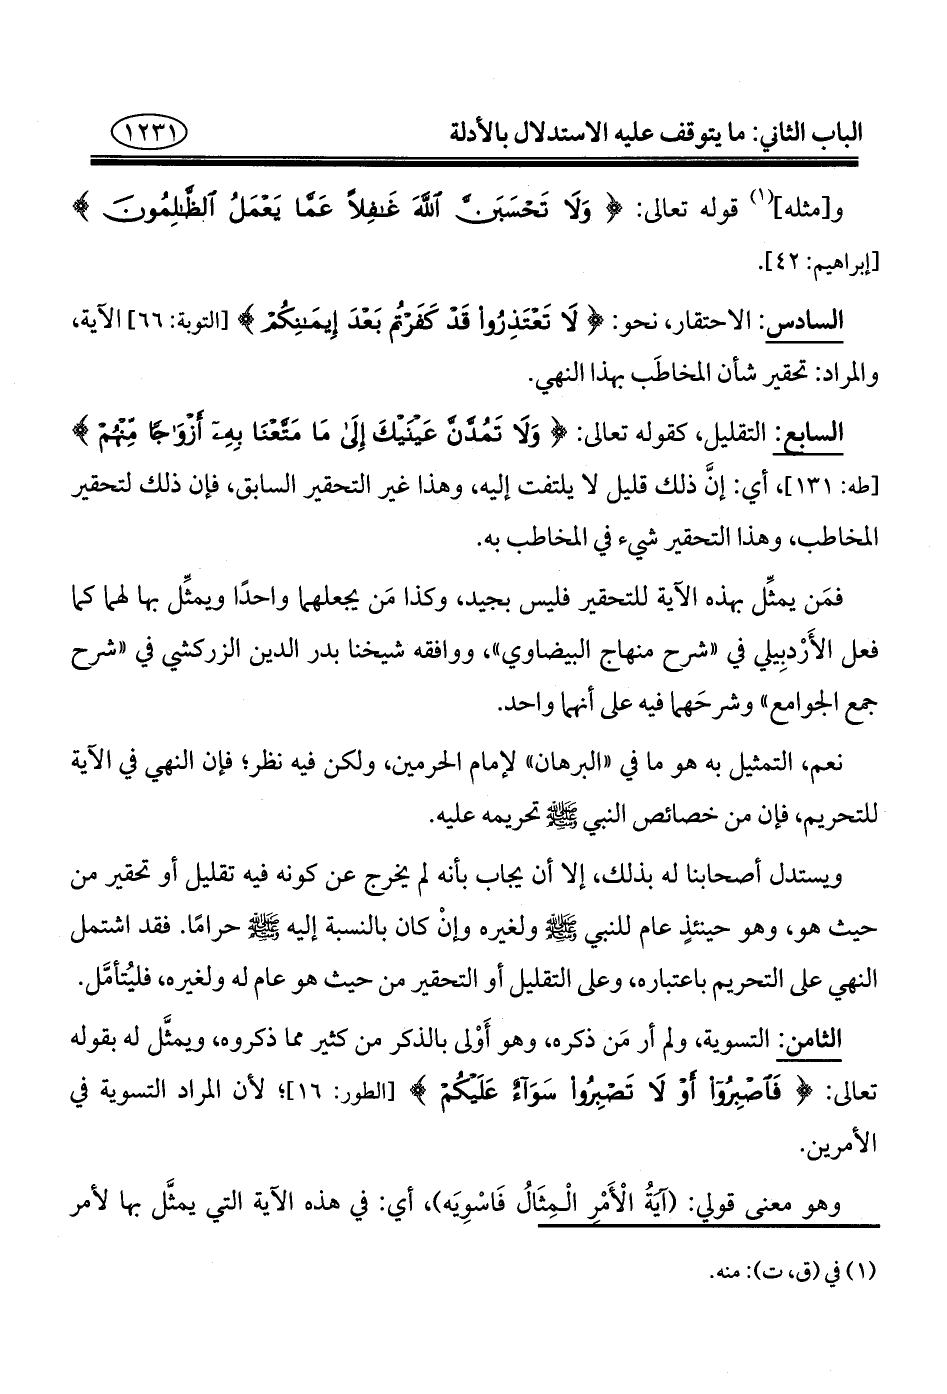 الباب الثاني: ما يتوقف عليه الاستدلال بالأدلة ١٢٣١
و[مثله](١) قوله تعالى: ﴿ وَلَا تَحْسَبَنَّ ٱللَّهَ غَٰفِلًا عَمَّا يَعْمَلُ ٱلظَّٰلِمُونَ ﴾
[إبراهيم: ٤٢].
السادس: الاحتقار، نحو: ﴿ لَا تَعْتَذِرُوا۟ قَدْ كَفَرْتُم بَعْدَ إِيمَٰنِكُمْ ﴾ [التوبة: ٦٦] الآية،
والمراد: تحقير شأن المخاطَب بهذا النهي.
السابع: التقليل، كقوله تعالى: ﴿ وَلَا تَمُدَّنَّ عَيْنَيْكَ إِلَىٰ مَا مَتَّعْنَا بِهِۦٓ أَزْوَٰجًا مِّنْهُمْ ﴾
[طه: ١٣١]، أي: إنَّ ذلك قليل لا يلتفت إليه، وهذا غير التحقير السابق، فإن ذلك لتحقير
المخاطب، وهذا التحقير شيء في المخاطب به.
فمَن يمثِّل بهذه الآية للتحقير فليس بجيد، وكذا مَن يجعلهما واحدًا ويمثِّل بها لهما كما
فعل الأَرْدبِيلي في «شرح منهاج البيضاوي»، ووافقه شيخنا بدر الدين الزركشي في «شرح
جمع الجوامع» وشرحَهما فيه على أنهما واحد.
نعم، التمثيل به هو ما في «البرهان» لإمام الحرمين، ولكن فيه نظر؛ فإن النهي في الآية
للتحريم، فإن من خصائص النبي ﷺ تحريمه عليه.
ويستدل أصحابنا له بذلك، إلا أن يجاب بأنه لم يخرج عن كونه فيه تقليل أو تحقير من
حيث هو، وهو حينئذٍ عام للنبي ﷺ ولغيره وإنْ كان بالنسبة إليه ﷺ حرامًا. فقد اشتمل
النهي على التحريم باعتباره، وعلى التقليل أو التحقير من حيث هو عام له ولغيره، فليُتأمَّل.
الثامن: التسوية، ولم أر مَن ذكره، وهو أَوْلى بالذكر من كثير مما ذكروه، ويمثَّل له بقوله
تعالى: ﴿ فَٱصْبِرُوٓا۟ أَوْ لَا تَصْبِرُوا۟ سَوَآءٌ عَلَيْكُمْ ﴾ [الطور: ١٦]؛ لأن المراد التسوية في
الأمرين.
وهو معنى قولي: (آيَةُ الْأَمْرِ الْـمِثَالُ فَاسْوِيَه)، أي: في هذه الآية التي يمثَّل بها لأمر
(١) في (ق، ت): منه.